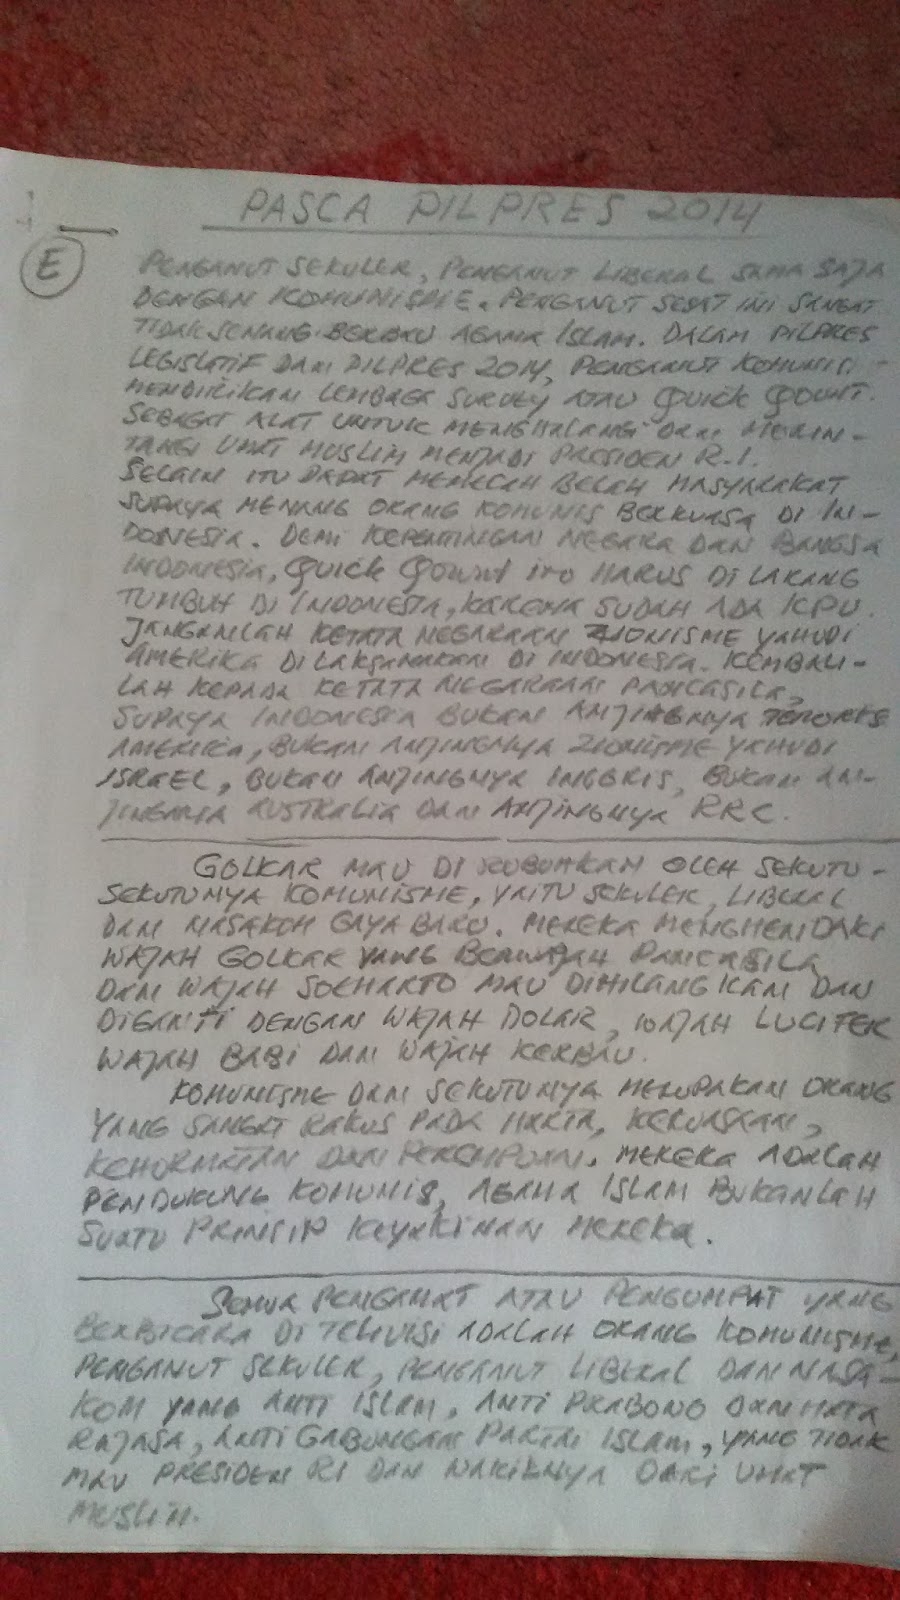 PASCA PILPRES 2014
E
PENGANUT SEKULER, PENGANUT LIBERAL SAMA SAJA
DENGAN KOMUNISME. PENGANUT SESAT INI SANGAT
TIDAK SENANG BERBAU AGAMA ISLAM. DALAM PILPRES
LEGISLATIF DAN PILPRES 2014, PENGANUT KOMUNIS
MENDIRIKAN LEMBAGA SURVEY ATAU QUICK QOUNT.
SEBAGAI ALAT UNTUK MENGHALANGI DAN MERIN-
TANGI UMAT MUSLIM MENJADI PRESIDEN R.I.
SELAIN ITU DAPAT MEMECAH BELAH MASYARAKAT
SUPAYA MENANG ORANG KOMUNIS BERKUASA DI IN-
DONESIA. DEMI KEPENTINGAN NEGARA DAN BANGSA
INDONESIA, QUICK QOUNT ITU HARUS DI LARANG
TUMBUH DI INDONESIA, KARENA SUDAH ADA KPU.
JANGANLAH KETATA NEGARAAN ZIONISME YAHUDI
AMERIKA DI LAKSANAKAN DI INDONESIA. KEMBALI-
LAH KEPADA KETATA NEGARAAN PANCASILA,
SUPAYA INDONESIA BUKAN ANJINGNYA
AMERIKA, BUKAN ANJINGNYA ZIONISME YAHUDI
ISRAEL, BUKAN ANJINGNYA INGGRIS, BUKAN AN-
JINGNYA AUSTRALIA DAN ANJINGNYA RRC.
GOLKAR MAU DI ROBOHKAN OLEH SEKUTU-
SEKUTUNYA KOMUNISME, YAITU SEKULER, LIBERAL
DAN NASAKOM GAYA BARU. MEREKA MENGHENDAKI
WAJAH GOLKAR YANG BERWAJAH PANCASILA
DAN WAJAH SOEHARTO MAU DIHILANGKAN DAN
DIGANTI DENGAN WAJAH DOLAR, WAJAH LUCIFER
WAJAH BABI DAN WAJAH KERBAU.
KOMUNISME DAN SEKUTUNYA MERUPAKAN ORANG
YANG SANGAT RAKUS PADA HARTA, KEKUASAAN,
KEHORMATAN DAN PEREMPUAN. MEREKA ADALAH
PENDUKUNG KOMUNIS, AGAMA ISLAM BUKANLAH
SUATU PRINSIP KEYAKINAN MEREKA.
SEMUA PENGAMAT ATAU PENGUMPAT YANG
BERBICARA DI TELEVISI ADALAH ORANG KOMUNISME,
PENGANUT SEKULER, PENGANUT LIBERAL DAN NASA-
KOM YANG ANTI ISLAM, ANTI PRABOWO DAN HATA
RAJASA, ANTI GABUNGAN PARTAI ISLAM, YANG TIDAK
MAU PRESIDEN RI DAN WAKILNYA DARI UMAT
MUSLIM.